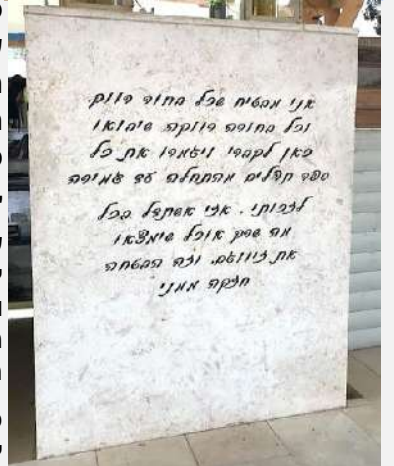 אני מבטיח שכל בחור רווק
וכל בחורה רווקה שיבואו
כאן לקברי ויגמרו את כל
ספר תהלים מהתחלה עד גמירה
לזכותי. אני אשתדל בכל
מה שרק אוכל שימצאו
את זיווגם. וזה הבטחה
חזקה ממני